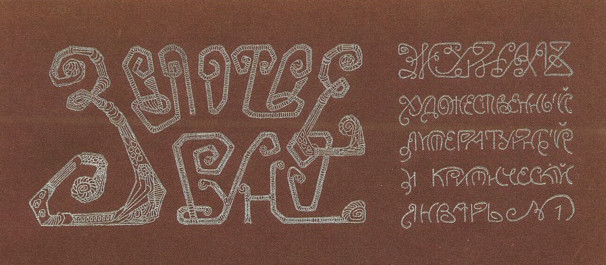 ЗОЛОТОЕ
РУНО
ЖУРНАЛЪ
ХУДОЖЕСТВЕННЫЙ
ЛИТЕРАТУРНЫЙ
И КРИТИЧЕСКІЙ
ЯНВАРЬ № 1